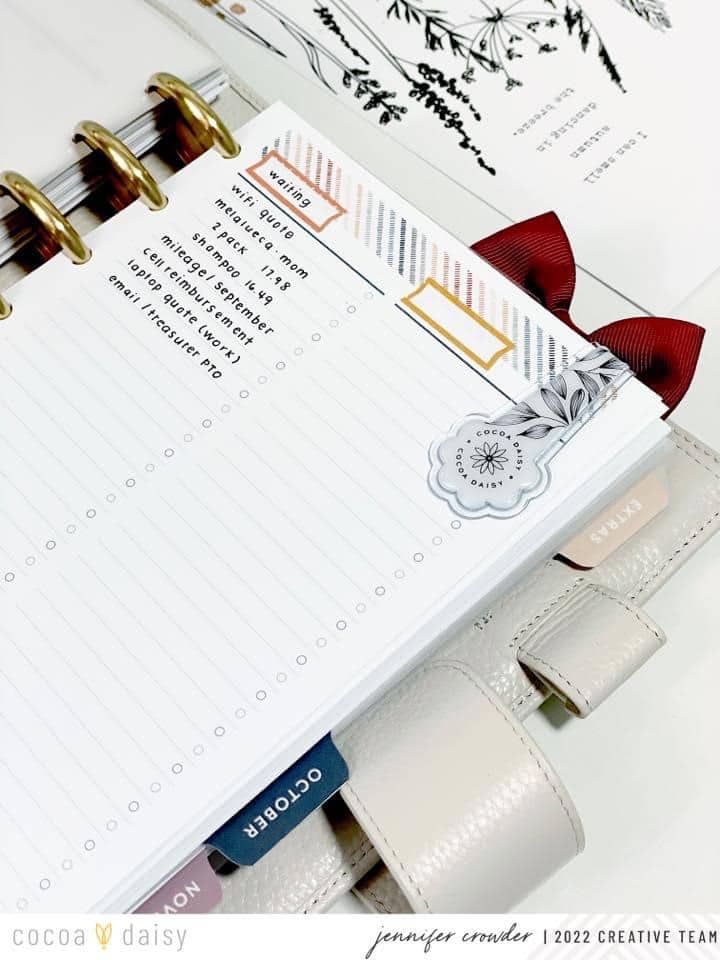 I can smell
autumn
dancing in
the breeze.
waiting
wifi quote
melalueca: mom
2 pack 17.98
shampoo 16.49
mileage/ september
cell reimbursement
laptop quote (work)
email /treasurer PTO
COCOA DAISY
COCOA DAISY
EXTRAS
OCTOBER
NOV
cocoa daisy
jennifer crowder | 2022 CREATIVE TEAM